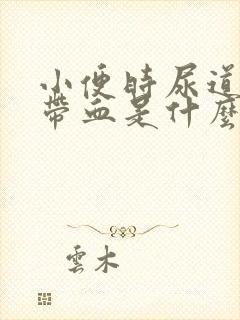 小便時尿道
帶血是什麼
雲木